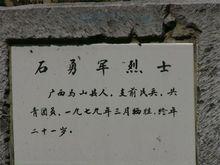 石勇军烈士
广西马山县人，支前民兵，共
青团员，一九七九年三月牺牲，终年
二十一岁。